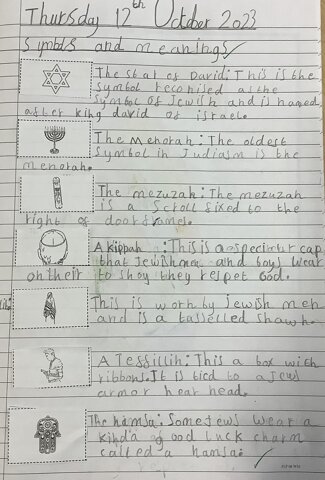 Thursday 12th October 2023
Symbols and meanings
The star of David: This is the
symbol reconised as the
symbol of Jewish and is named
after king david of israel.
The Menorah: The oldest
symbol in Judiasm is the
menorah.
The mezuzah: The mezuzah
is a scroll fixed to the
right of doorframes.
A kippah : This is a specimur cap
that Jewish men and boys wear
on their to shoy they respet God.
This is worn by Jewish men
and is a tasselled shawh.
A Tessillih: This a box with
ribbons. It is tied to a jews
armor hear head.
The hamsa: Some Jews wear a
kinda good luck charm
called a hamsa.